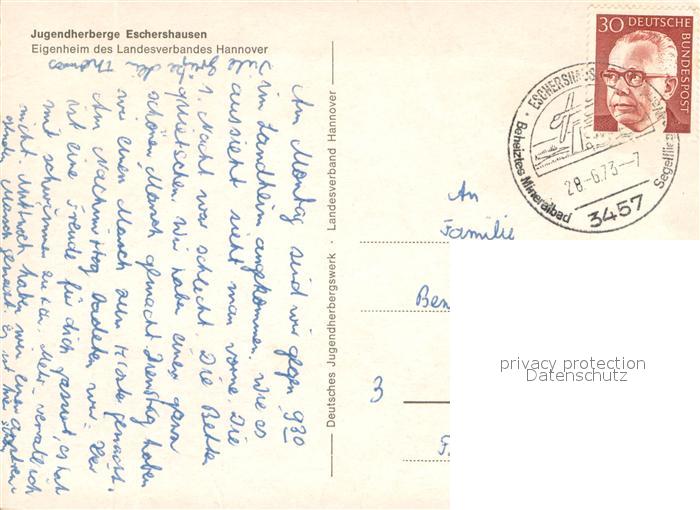 Jugendherberge Eschershausen
Eigenheim des Landesverbandes Hannover
30 DEUTSCHE
BUNDESPOST
ESCHERSHAUS
Beheiztes Mineralbad
28.-6.73-7
3457
Segelflie
Deutsches Jugendherbergswerk · Landesverband Hannover
Am Montag sind wir gegen 9 30
im Landheim angekommen. Wie es
hie aussieht sieht man vorne. Die
1. Nacht war schlecht. Die Betten
quietschen. Wir haben einen ganz
schönen Marsch gemacht. Dienstag haben
wir einen Marsch zum gemacht.
Am Nachmittag badeten wir. Hier
ist eine Freude für dich passiert, es hat
mit schwimmen Mehr verrate ich
nicht. Mittwoch haben wir einen
Marsch gemacht. Es ist hie
Grüße dein Thomas
An
Familie
Ben
3
privacy protection
Datenschutz